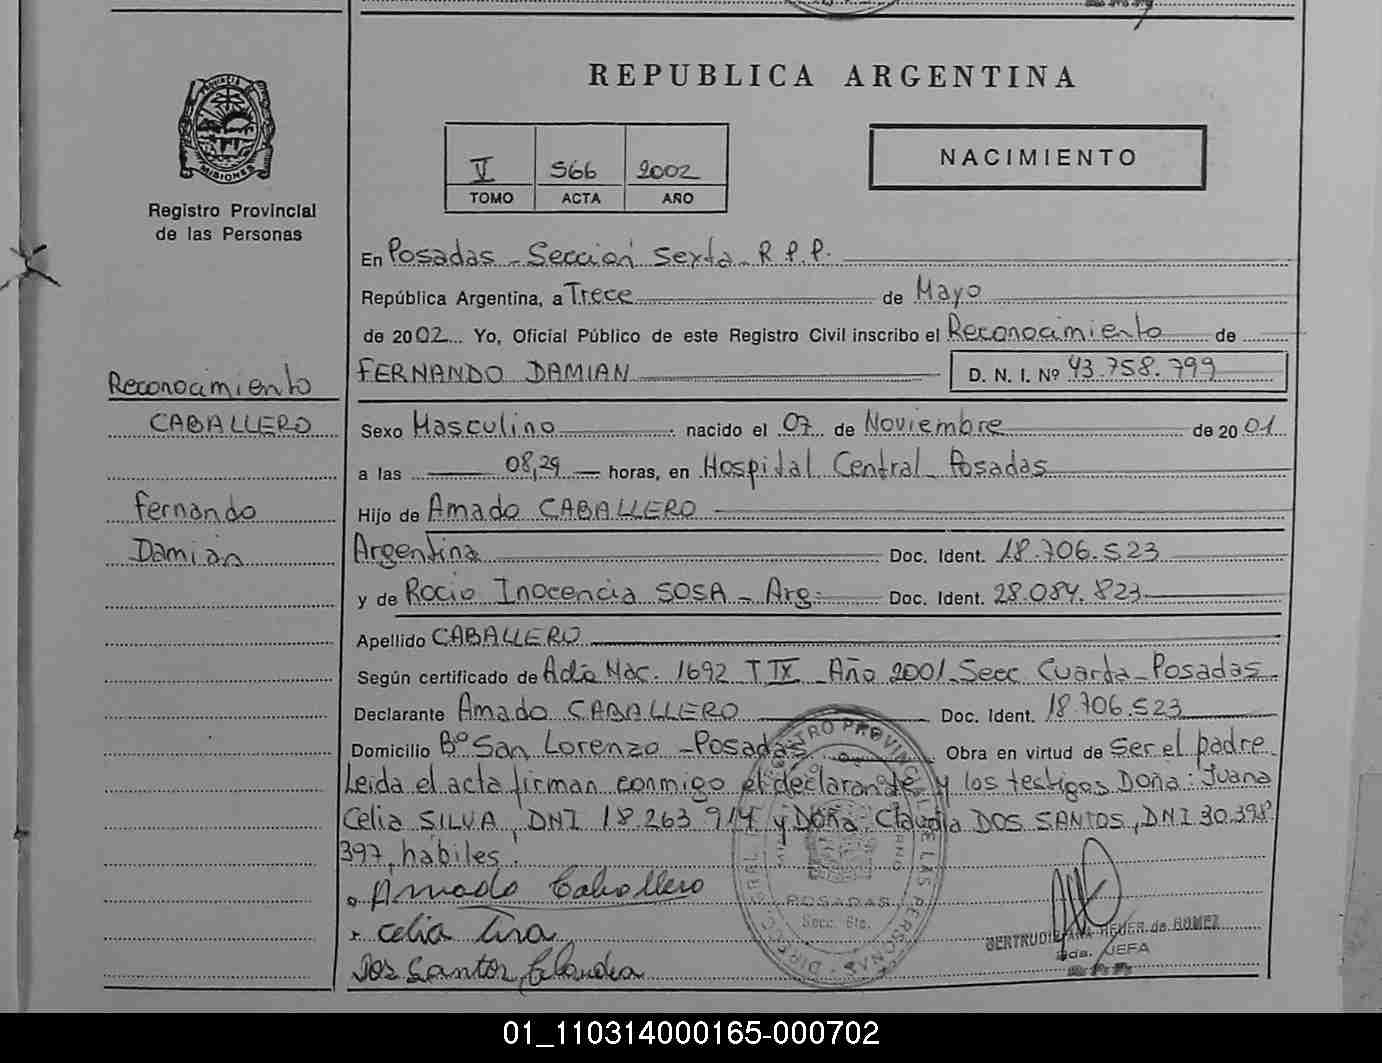 REPUBLICA ARGENTINA
PROVINCIA
MISIONES
Registro Provincial
de las Personas
V 566 2002
TOMO ACTA AÑO
NACIMIENTO
En Posadas - Sección Sexta - R.P.P.
República Argentina, a Trece de Mayo
de 2002 Yo, Oficial Público de este Registro Civil inscribo el Reconocimiento de
FERNANDO DAMIAN D. N. I. Nº 43.758.799
Reconocimiento
CABALLERO
Fernando
Damián
Sexo Masculino nacido el 07 de Noviembre de 2001
a las 08,29 horas, en Hospital Central Posadas
Hijo de Amado CABALLERO
Argentina Doc. Ident. 18.706.523
y de Rocio Inocencia SOSA - Arg. Doc. Ident. 28.084.823
Apellido CABALLERO
Según certificado de Acta Nac. 1692 T IX Año 2001 Secc Cuarta - Posadas
Declarante Amado CABALLERO Doc. Ident. 18.706.523
Domicilio Bº San Lorenzo - Posadas Obra en virtud de ser el padre
Leida el acta firman conmigo el declarante y los testigos Doña: Juana
Celia SILVA, DNI 18.263.914 y Doña Claudia DOS SANTOS, DNI 30.398
397, hábiles.
Amado Caballero
Celia
Dos Santos Claudia
POSADAS
Secc. 6ta.
GERTRUDIS HEUER de GOMEZ
JEFA
01_110314000165-000702